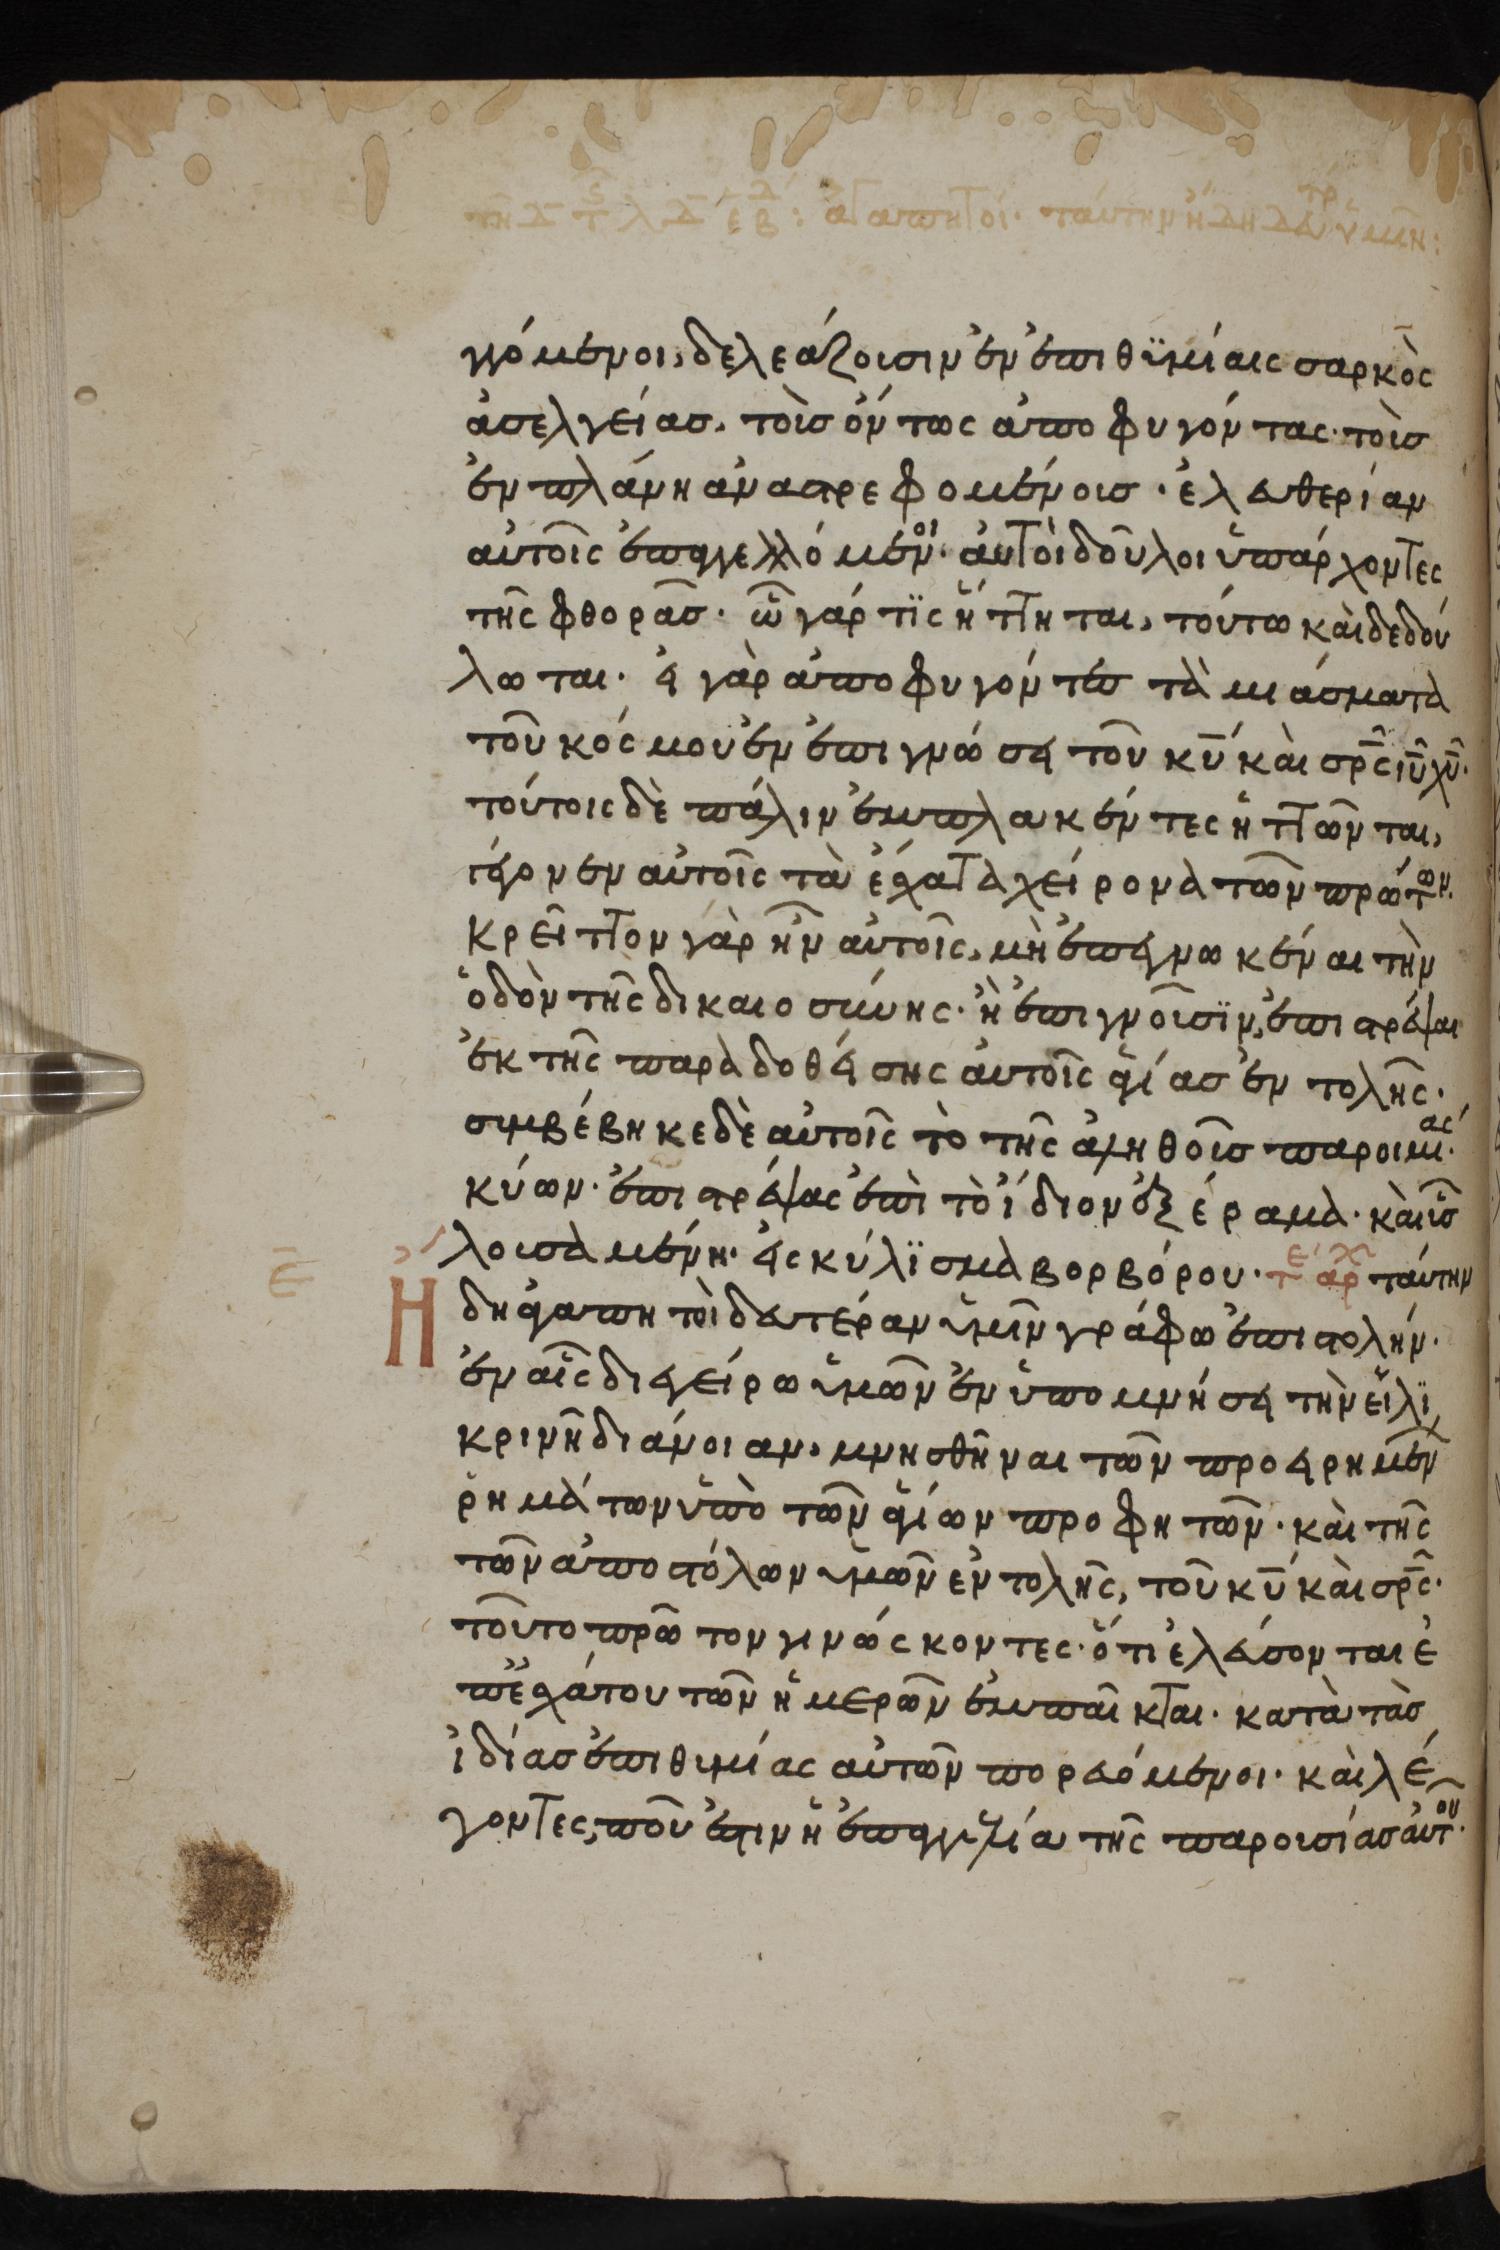 τῆ Δ τ λ Δ ἑβ Δ: ἀγαπητοί· ταύτην ἤδη δευτρ ὑμῖν:
γγόμενοι, δελεάζουσιν ἐν ἐπιθϋμίαις σαρκὸς
ἀσελγείασ, τοὺσ ὄντως ἀποφυγόντας· τοὺσ
ἐν πλάνη ἀναστρεφομένουσ· ἐλευθερίαν
αὐτοῖς ἐπαγγελλόμενοι· αὐτοὶ δοῦλοι ὑπάρχοντες
τῆς φθορᾶσ· ὧ γάρ τϊς ἥττηται, τούτω καὶ δεδού
λωται· εἰ γὰρ ἀποφυγόντεσ τὰ μιάσματα
τοῦ κόσμου ἐν ἐπιγνώσει τοῦ κυ καὶ σρς ιυ χυ·
τούτοις δὲ πάλιν ἐμπλακέντες ἡττῶνται,
γέγονεν αὐτοῖς τὰ ἔσχατα χείρονα τῶν πρώτων.
κρεῖττον γὰρ ἦν αὐτοῖς, μὴ ἐπεγνωκέναι τὴν
ὁδὸν τῆς δικαιοσύνης· ἢ ἐπιγνοῦσϊν, ἐπιστρέψαι
ἐκ τῆς παραδοθείσης αὐτοῖς ἁγίασ ἐντολῆς·
συμβέβηκε δὲ αὐτοῖς τὸ τῆς ἀληθοῦσ παροιμίας·
κύων· ἐπιστρέψας ἐπὶ τὸ ἴδιον ἐξέραμα· καὶ ὗσ
λουσαμένη· εἰς κύλϊσμα βορβόρου· τε αρχ ταύτην
Ἤδη ἀγαπητοὶ δευτέραν ὑμῖν γράφω ἐπιστολήν·
ε
ἐν αἷς διεγείρω ὑμῶν ἐν ὑπομνήσει τὴν εἰλϊ
κρινῆ διάνοιαν, μνησθῆναι τῶν προειρημέν
ῥημάτων ὑπὸ τῶν ἁγίων προφητῶν· καὶ τῆς
τῶν ἀποστόλων ὑμῶν ἐντολῆς, τοῦ κυ καὶ σρς·
τοῦτο πρῶτον γινώσκοντες· ὅτι ἐλεύσονται ἐ
π' ἐσχάτου τῶν ἡμερῶν ἐμπαῖκται· κατὰ τὰσ
ἰδίασ ἐπιθυμίας αὐτῶν πορευόμενοι· καὶ λέ
γοντες, ποῦ ἐστιν ἡ ἐπαγγελία τῆς παρουσίασ αὐτοῦ·